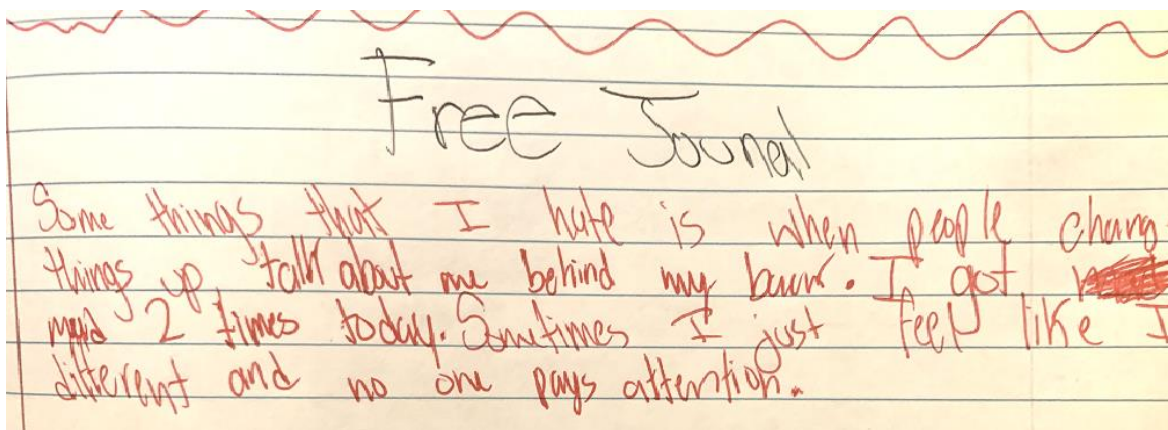 Free Jounal
Some things that I hate is when people chang
things up, talk about me behind my back. I got
mad 2 times today. Sometimes I just feel like I
different and no one pays attention.